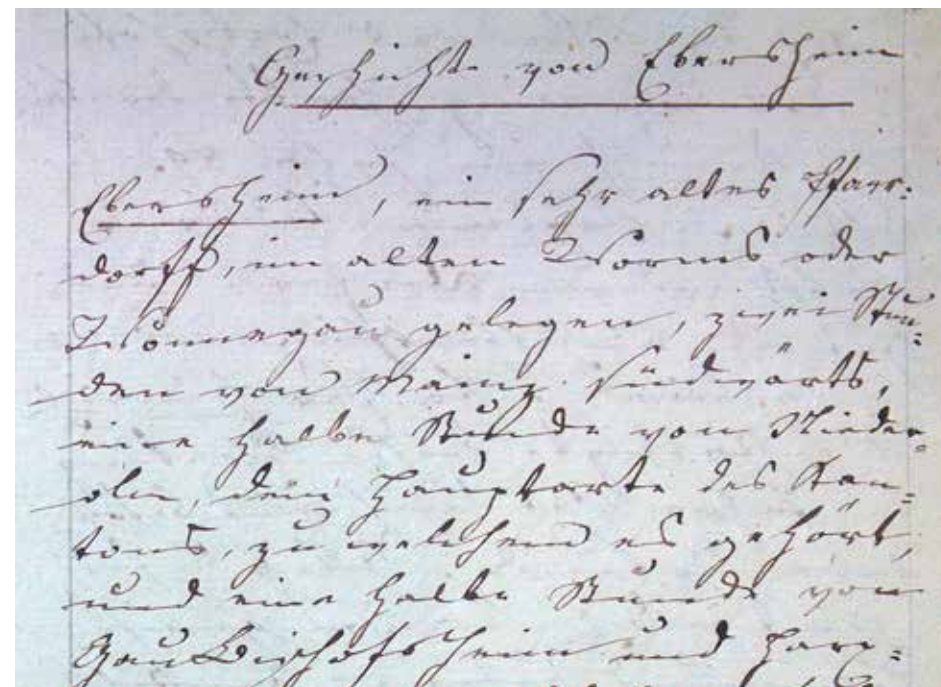 Geschichte von Ebersheim
Ebersheim, ein sehr altes Pfarr=
dorff, im alten Worms oder
Wonnegau gelegen, zwei Stun=
den von Mainz südwärts,
eine halbe Stunde von Nieder=
olm, dem Hauptorte des Kan=
tons, zu welchem es gehört,
und eine halbe Stunde von
Gau Bischofsheim und Harx=